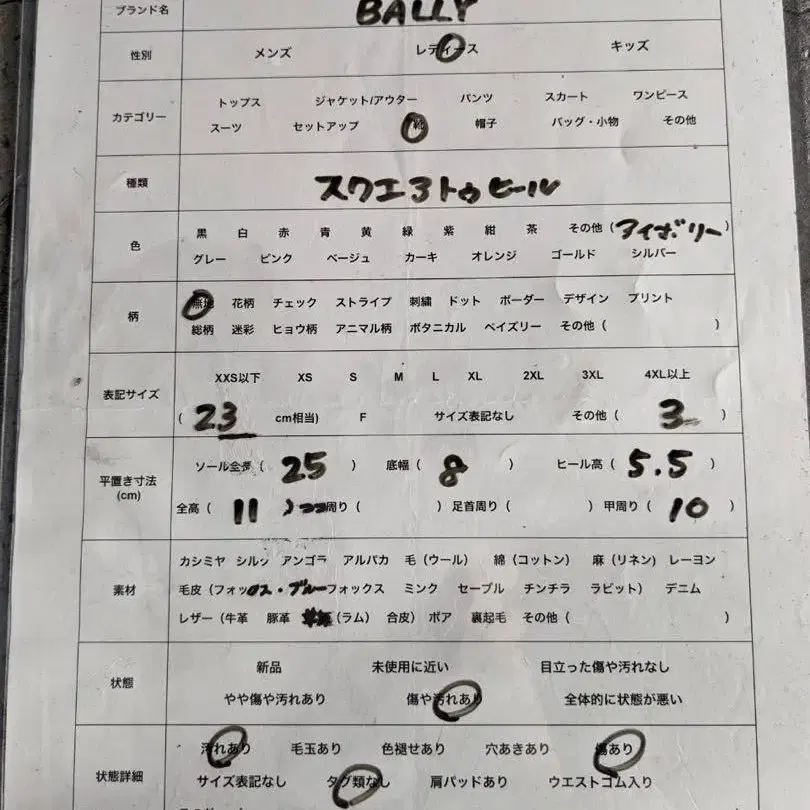 ブランド名 BALLY
性別 メンズ レディース キッズ
カテゴリー トップス ジャケット/アウター パンツ スカート ワンピース
スーツ セットアップ 靴 帽子 バッグ・小物 その他
種類 スクエアトゥヒール
色 黒 白 赤 青 黄 緑 紫 紺 茶 その他（アイボリー）
グレー ピンク ベージュ カーキ オレンジ ゴールド シルバー
柄 無地 花柄 チェック ストライプ 刺繍 ドット ボーダー デザイン プリント
総柄 迷彩 ヒョウ柄 アニマル柄 ボタニカル ペイズリー その他（ ）
表記サイズ XXS以下 XS S M L XL 2XL 3XL 4XL以上
（ 23 cm相当） F サイズ表記なし その他（ 3 ）
平置き寸法 (cm) ソール全長（ 25 ） 底幅（ 8 ） ヒール高（ 5.5 ）
全高（ 11 ） 周り（ ）足首周り（ ）甲周り（ 10 ）
素材 カシミヤ シルク アンゴラ アルパカ 毛（ウール） 綿（コットン） 麻（リネン） レーヨン
毛皮（フォックス・ブルーフォックス ミンク セーブル チンチラ ラビット） デニム
レザー（牛革 豚革 （ラム） 合皮）ボア 裏起毛 その他（ ）
状態 新品 未使用に近い 目立った傷や汚れなし
やや傷や汚れあり 傷や汚れあり 全体的に状態が悪い
状態詳細 汚れあり 毛玉あり 色褪せあり 穴あきあり 傷あり
サイズ表記なし タグ類なし 肩パッドあり ウエストゴム入り